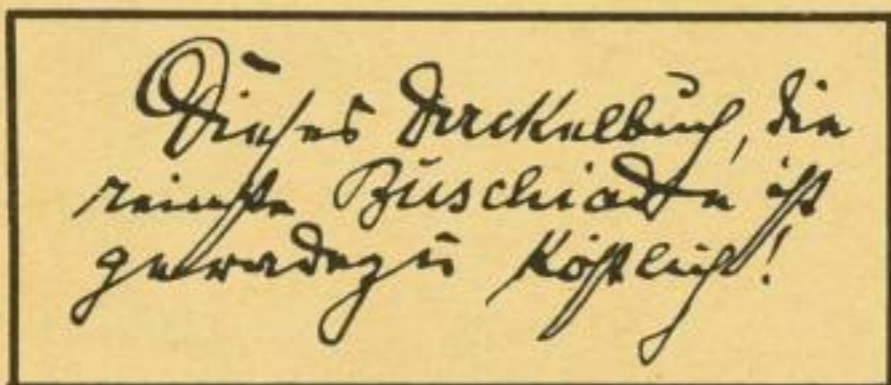 Dieses Dackelbuch, die
reinste Buschiade ist
geradezu köstlich!